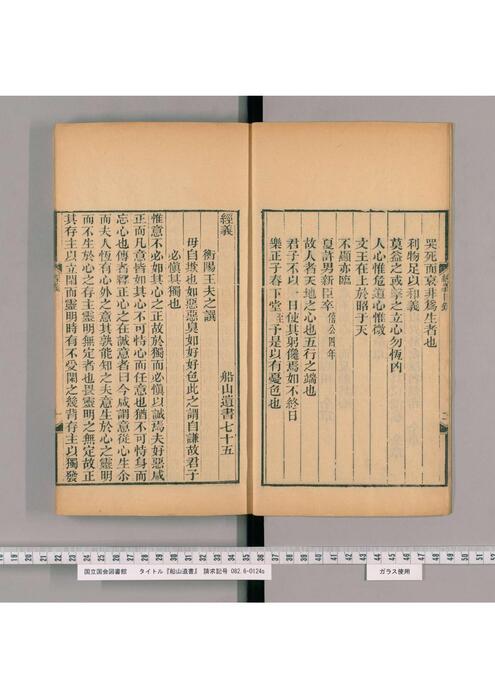 哭死而哀非爲生者也
利物足以和義
莫益之或擊之立心勿恆凶
人心惟危道心惟微
文王在上於昭于天
不顯亦臨
夏許男新臣卒僖公四年
故人者天地之心也五行之端也
君子不以一日使其躬儳焉如不終日
樂正子春下堂至予是以有憂色也
經義 船山遺書七十五
衡陽王夫之譔
毋自欺也如惡惡臭如好好色此之謂自謙故君子
必愼其獨也
惟意不必如其心之正故於獨而必愼以誠焉夫好惡咸
正而凡意皆如其心不可恃心而任意也猶不可恃身而
忘心也傳者釋正心之在誠意者曰今咸謂意從心生尒
而夫人恆有心外之意其孰能知之夫意生於心之靈明
而不生於心之存主靈明無定者也畏靈明之無定故正
其存主以立閑而靈明時有不受閑之幾背存主以獨發
國立国会図書館 タイトル『船山遺書』 請求記号 082.6-0124s
ガラス使用